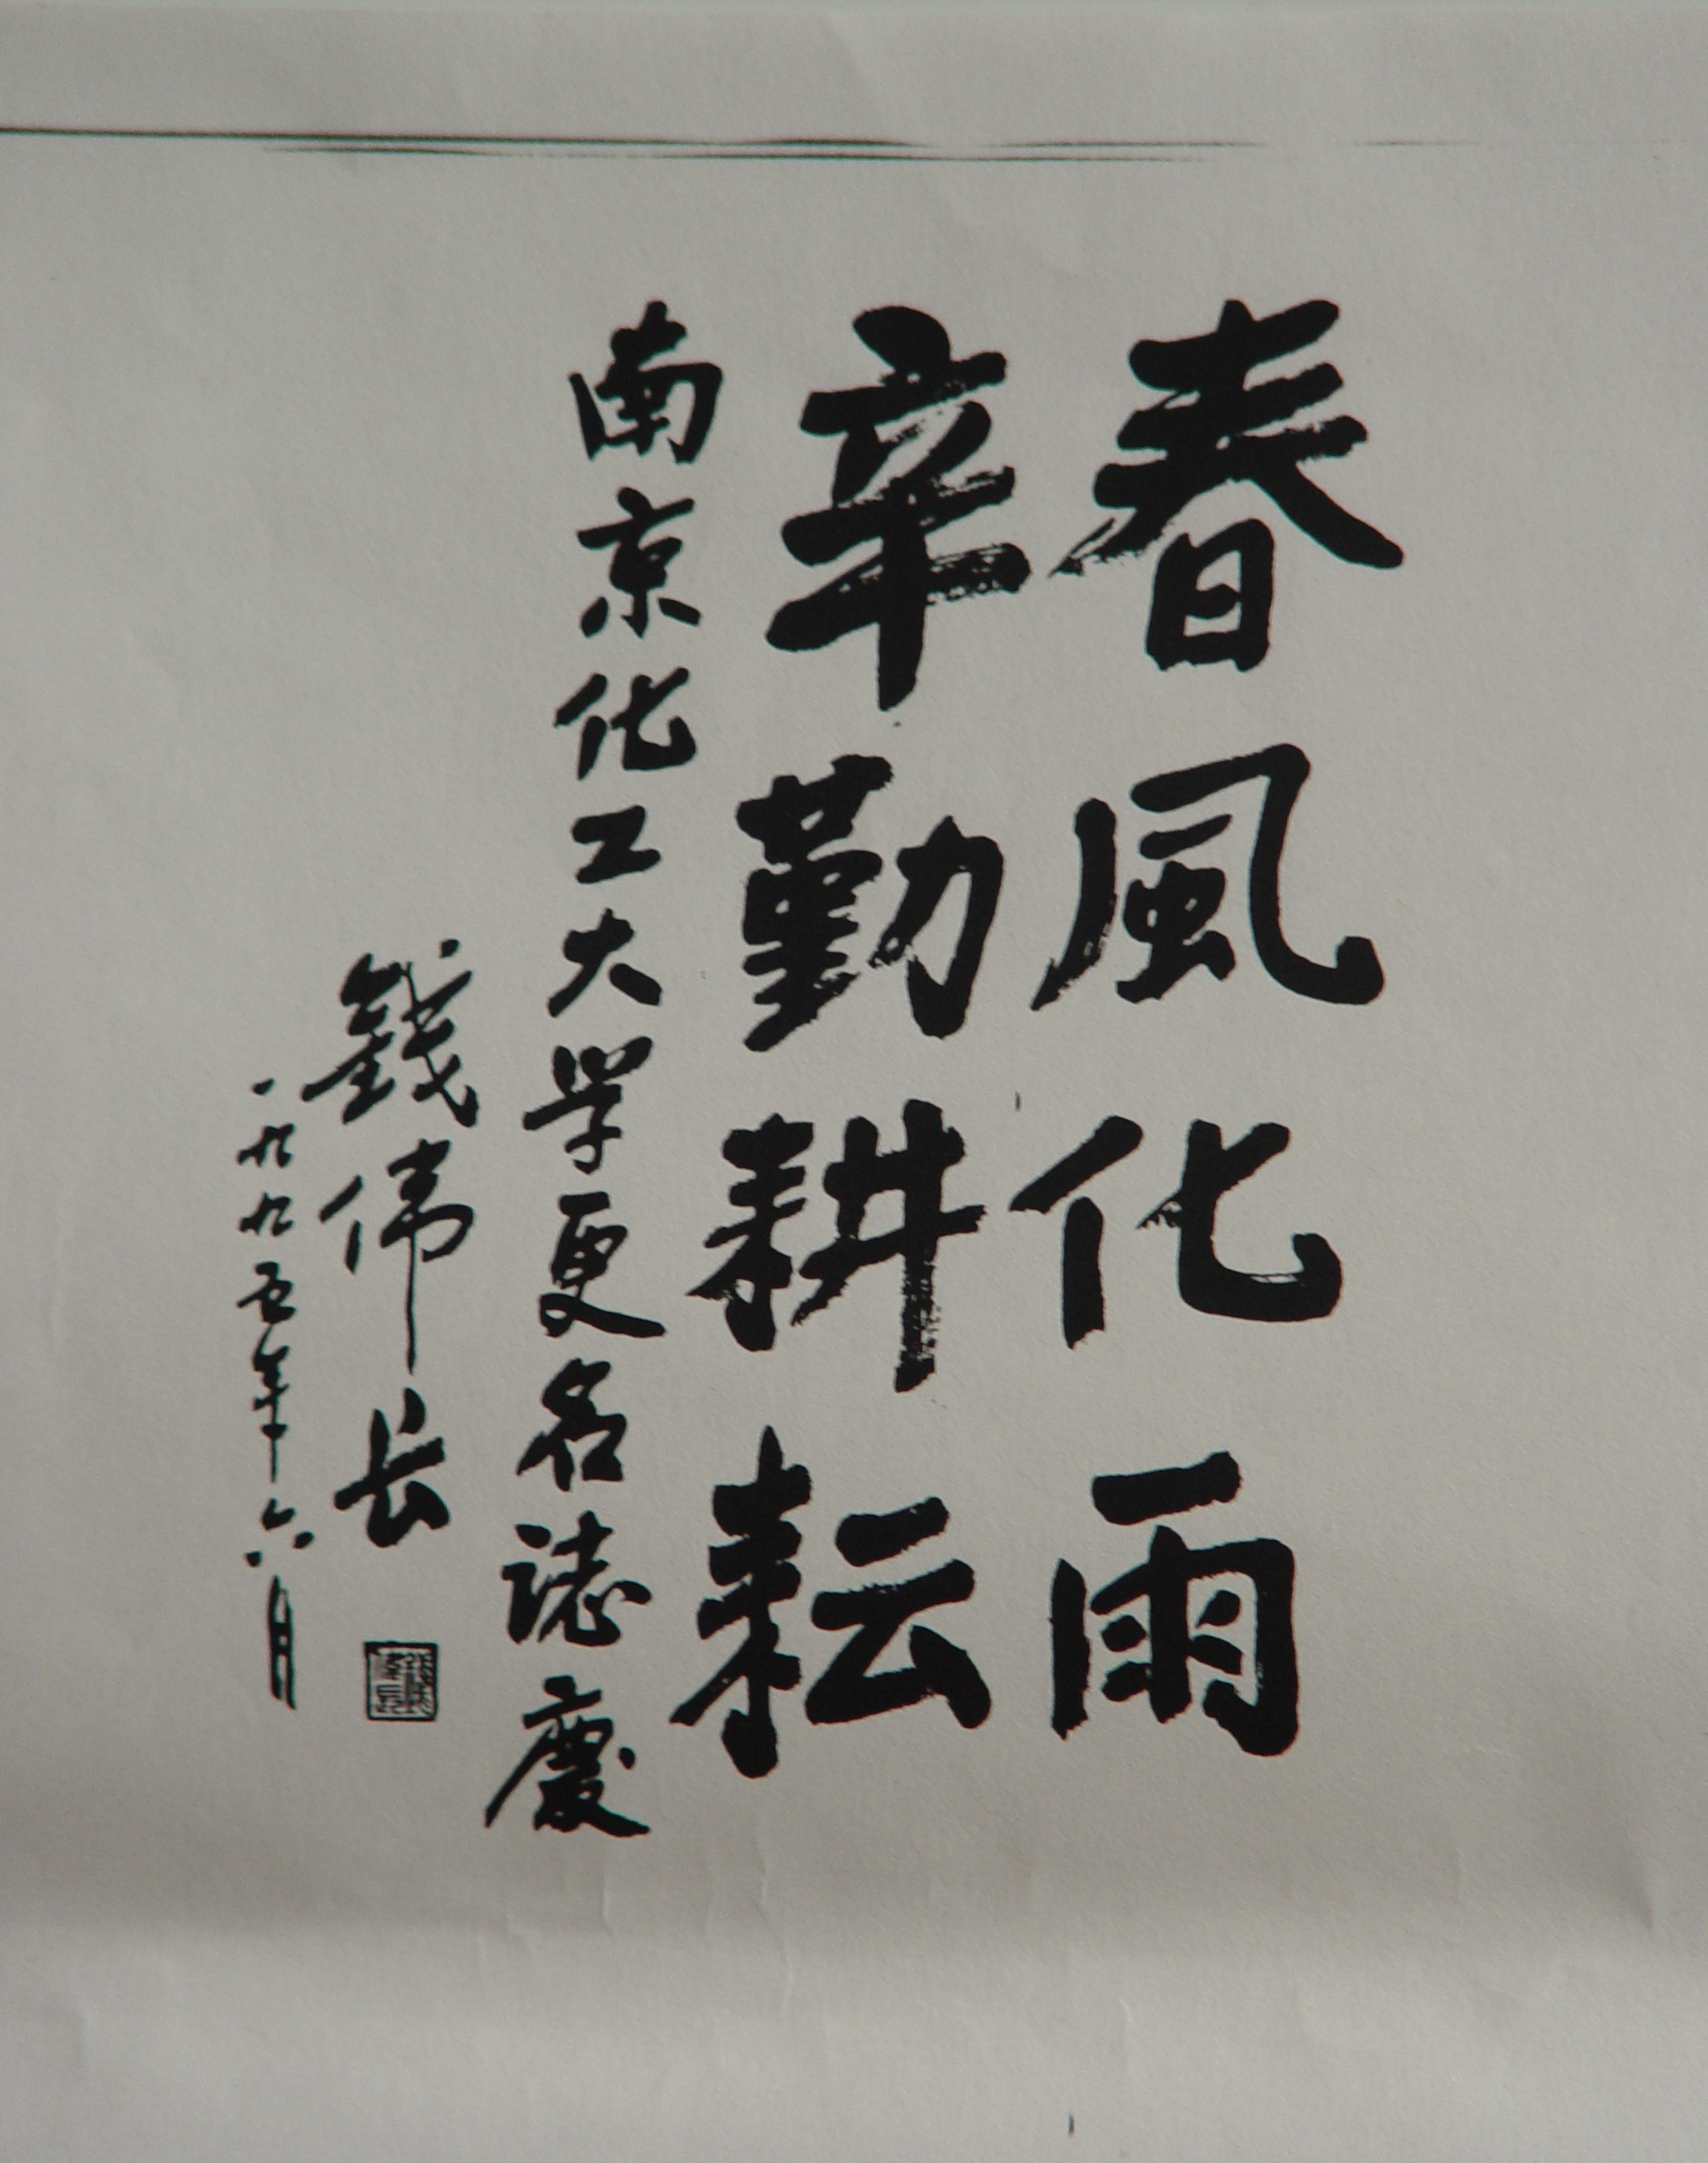 春風化雨
辛勤耕耘
南京化工大学更名誌慶
錢偉長
一九九五年六月